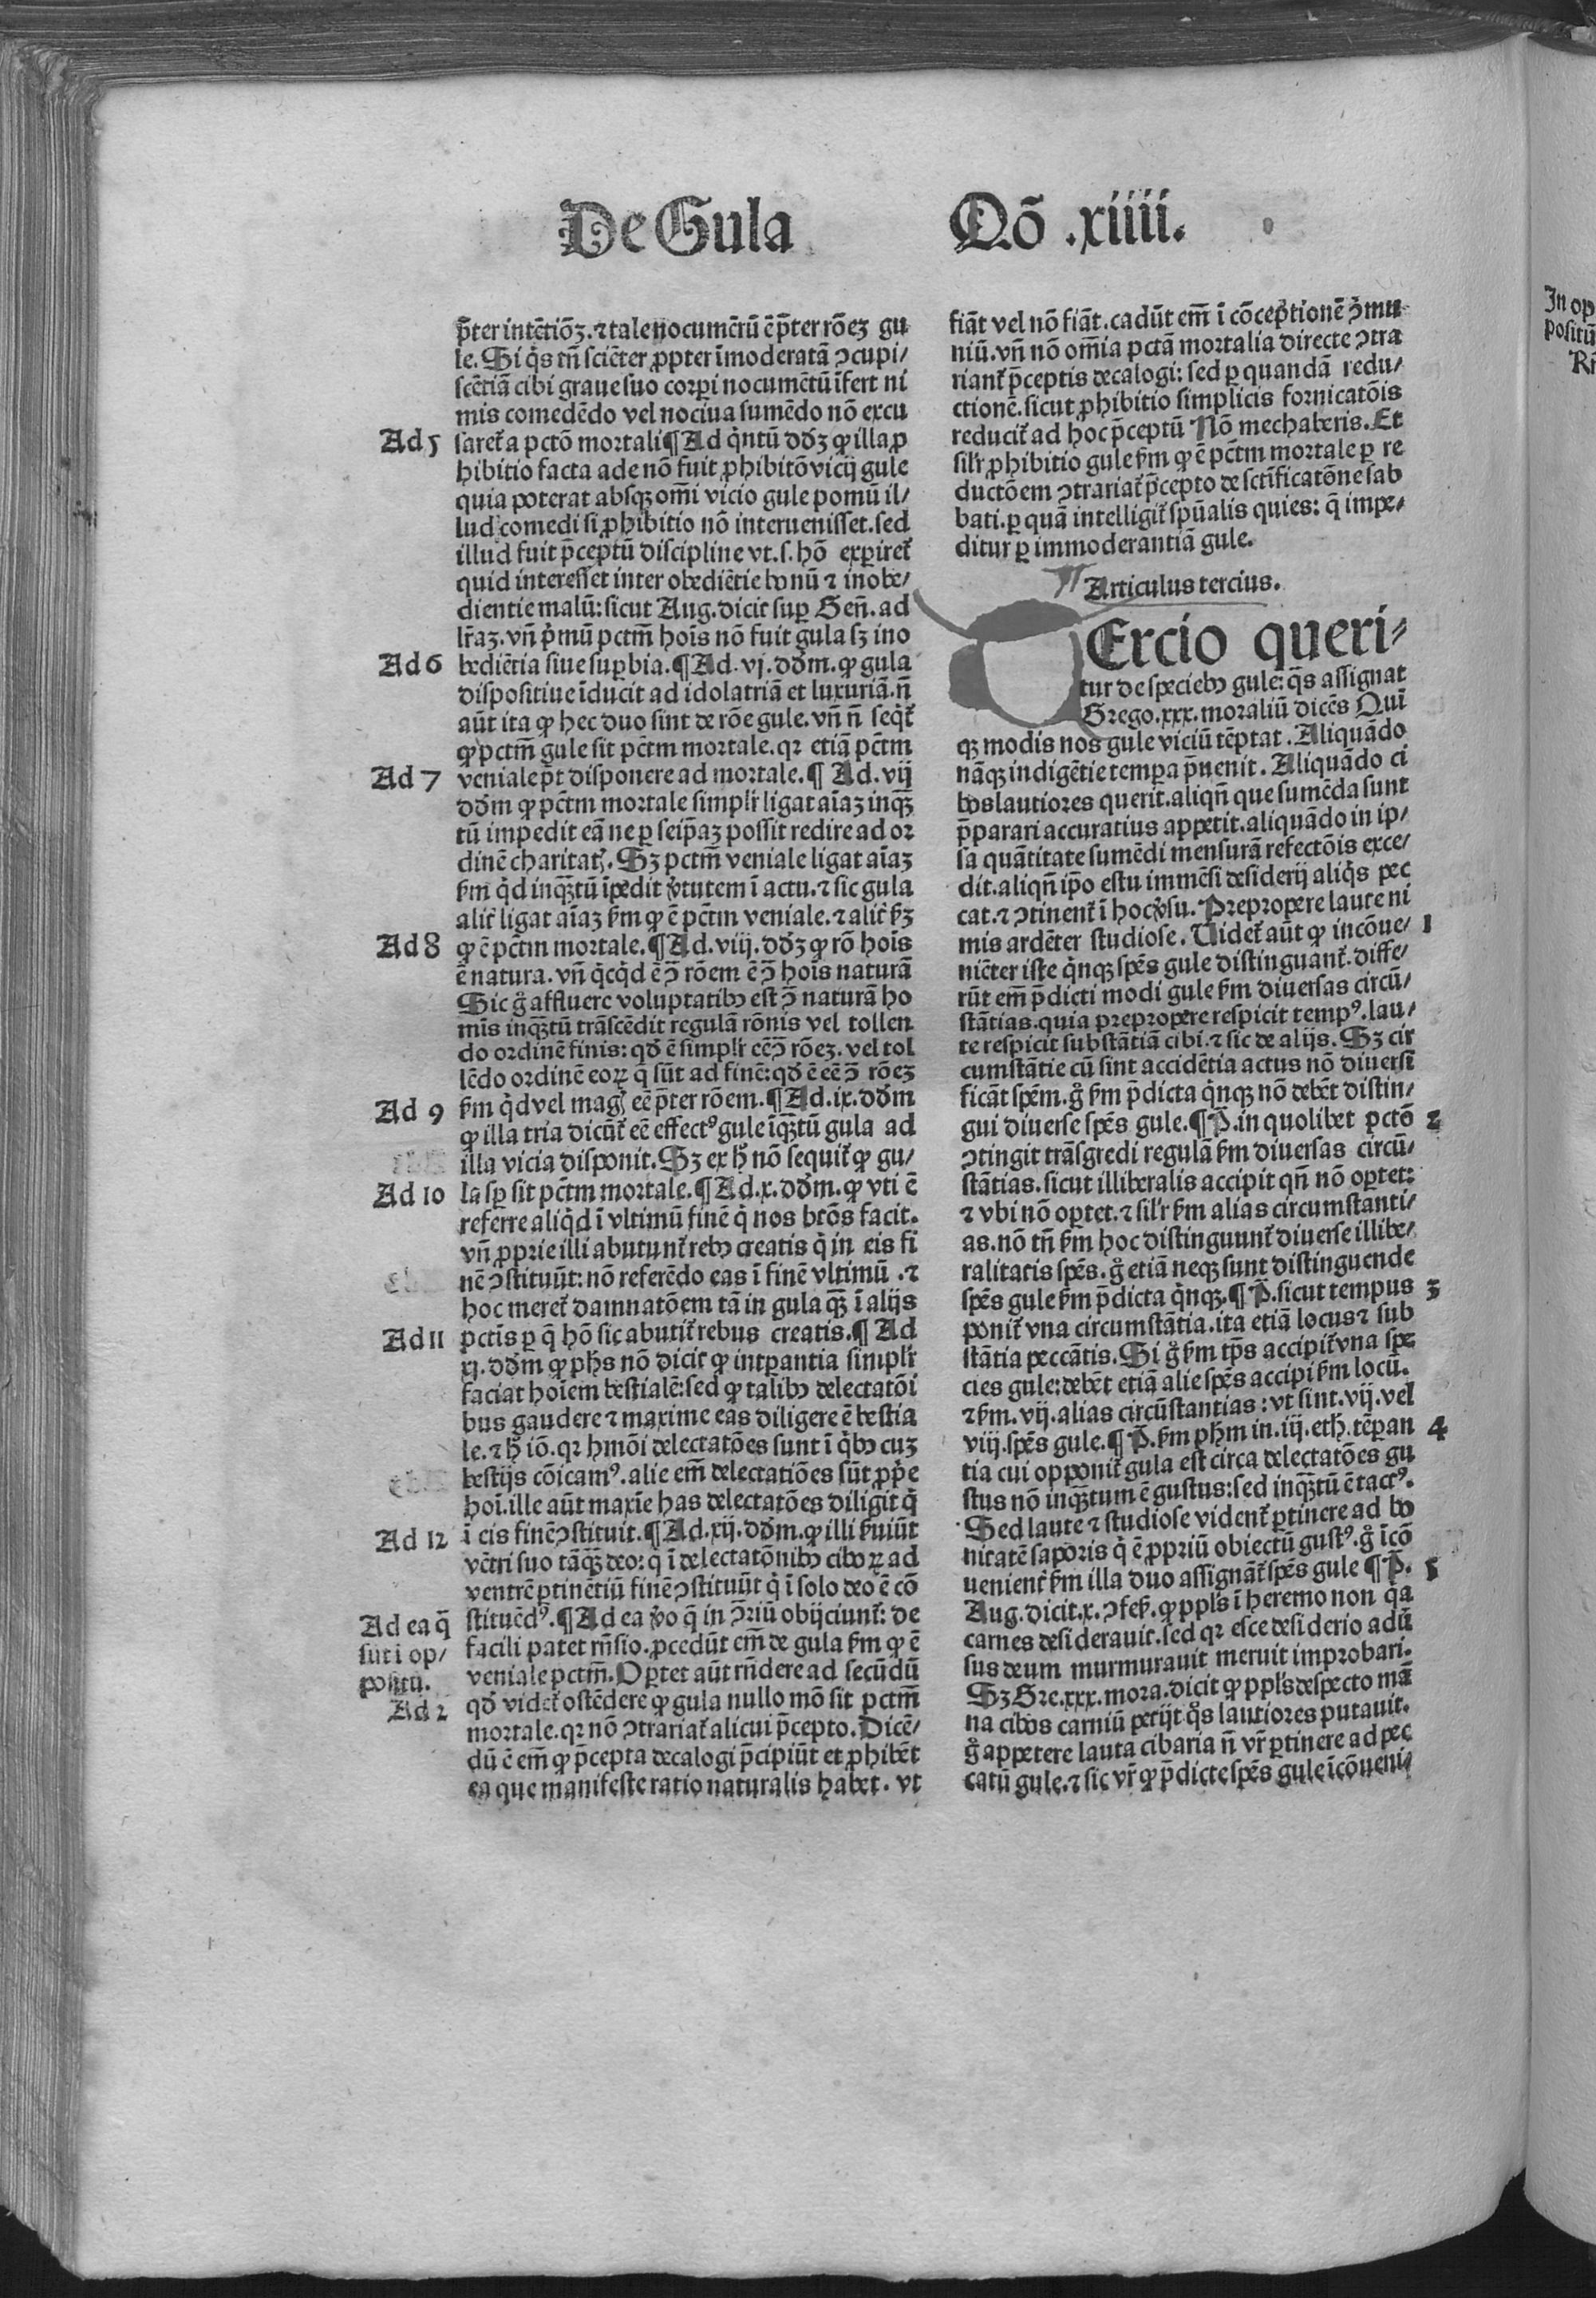 De Gula
Qō .xiiii.
p̄ter intētiōꝫ. ⁊ tale nocumētū ē p̄ter rōeꝫ gu
le. Si q̇s tn̄ sciēter ꝓpter īmoderatā ↄcupi/
scētiā cibi graue suo corꝑi nocumētū īfert ni
mis comedēdo vel nociua sumēdo nō excu
Ad 5
saret̄ a pctō mortali ¶ Ad q̇ntū dd̄ꝫ ꝙ illa ꝓ
hibitio facta ade nō fuit ꝓhibitō vicij gule
quia poterat absqꝫ om̄i vicio gule pomū il/
lud comedi si ꝓhibitio nō interuenisset. sed
illud fuit p̄ceptū discipline vt .s. hō exꝑiret̄
quid interesset inter obediētie bonū ⁊ inobe/
dientie malū: sicut Aug. dicit suꝑ Gen̄. ad
lr̄aꝫ. vn̄ ṗmū pctm̄ hoīs nō fuit gula sꝫ ino
Ad 6
bediētia siue suꝑbia. ¶ Ad .vj. dd̄m. ꝙ gula
dispositiue īducit ad idolatriā et luxuriā. n̄
aūt ita ꝙ hec duo sint de rōe gule. vn̄ n̄ seq̇t̄
ꝙ pctm̄ gule sit pctm̄ mortale. qꝛ etiā pctm̄
Ad 7
veniale p̄t disponere ad mortale. ¶ Ad .vij
dd̄m ꝙ pctm̄ mortale simplr̄ ligat aīaꝫ inqꝫ̄
tū impedit eā ne ꝑ seip̄aꝫ possit redire ad oꝛ
dinē charitatꝭ. Sꝫ pctm̄ veniale ligat aīaꝫ
ẜm q̇d inqꝫ̄tū īpedit v̓tutem ī actu. ⁊ sic gula
alir̄ ligat aīaꝫ ẜm ꝙ ē pctm̄ veniale. ⁊ alir̄ ẜꝫ
Ad 8
ꝙ ē pctm̄ mortale. ¶ Ad .viij. dd̄ꝫ ꝙ rō hoīs
ē natura. vn̄ q̇cq̇d ē ↄ̄ rōem ē ↄ̄ hoīs naturā
Sic g̊ affluere voluptatibꝰ est ↄ̄ naturā ho
mīs inqꝫ̄tū trāscēdit regulā rōnis vel tollen
do ordinē finis: qd̄ ē simplr̄ eē ↄ̄ rōeꝫ. vel tol
lēdo ordinē eoꝝ q̄ sūt ad finē: qd̄ ē eē ↄ̄ rōeꝫ
Ad 9
ẜm q̇d vel magꝭ eē p̄ter rōem. ¶ Ad .ix. dd̄m
ꝙ illa tria dicūt̄ eē effectꝰ gule īqꝫ̄tū gula ad
illa vicia disponit. Sꝫ ex h̓ nō sequit̄ ꝙ gu/
Ad 10
la sꝑ sit pctm̄ mortale. ¶ Ad .x. dd̄m. ꝙ vti ē
referre aliq̇d ī vltimū finē q̇ nos btōs facit.
vn̄ ꝓprie illi abutunt̄ rebꝰ creatis q̇ in eis fi
nē ↄstituūt: nō referēdo eas ī finē vltimū. ⁊
hoc meret̄ damnatōem tā in gula qꝫ̄ ī alijs
Ad 11
pctīs ꝑ q̄ hō sic abutit̄ rebus creatis. ¶ Ad
xj. dd̄m ꝙ ph̄s nō dicit ꝙ intꝑantia simplr̄
faciat hoīem bestialē: sed ꝙ talibꝰ delectatōi
bus gaudere ⁊ maxime eas diligere ē bestia
le. ⁊ h̓ iō. qꝛ hmōi delectatōes sunt ī q̇bꝰ cuꝫ
bestijs cōicamꝰ. alie em̄ delectatiōes sūt ꝓp̓e
hoī. ille aūt maxīe has delectatōes diligit q̇
Ad 12
ī eis finē ↄstituit. ¶ Ad .xij. dd̄m. ꝙ illi ẜuiūt
vētri suo tāqꝫ̄ deo: q̇ ī delectatōnibꝰ ciboꝝ ad
ventrē ꝑtinētiū finē ↄstituūt q̇ ī solo deo ē cō
Ad ea q̄
sūt i op/
positū.
stituēdꝰ. ¶ Ad ea v̓o q̄ in ↄ̄riū obijciunt̄: de
facili patet rn̄sio. ꝓcedūt em̄ de gula ẜm ꝙ ē
veniale pctm̄. Oportet aūt rn̄dere ad secūdū
Ad 2
qd̄ videt̄ ostēdere ꝙ gula nullo mō sit pctm̄
mortale. qꝛ nō ↄtrariat̄ alicui p̄cepto. Dicē/
dū ē em̄ ꝙ p̄cepta decalogi p̄cipiūt et ꝓhibēt
ea que manifeste ratio naturalis habet. vt
fiāt vel nō fiāt. cadūt em̄ ī cōceptionē ↄ̄mu
niū. vn̄ nō om̄ia pctā mortalia directe ↄtra
riant̄ p̄ceptis decalogi: sed ꝑ quandā redu/
ctionē. sicut ꝓhibitio simplicis fornicatōis
reducit̄ ad hoc p̄ceptū Nō mechaberis. Et
silr̄ ꝓhibitio gule ẜm ꝙ ē pctm̄ mortale ꝑ re
ductōem ↄtrariat̄ p̄cepto de sctīficatōne sab
bati. ꝑ quā intelligit̄ spūalis quies: q̄ impe/
ditur ꝑ immoderantiā gule.
Articulus tercius.
TErcio queri/
tur de speciebꝰ gule: q̄s assignat
Grego. xxx. moraliū dicēs Qui
qꝫ modis nos gule viciū tēptat. Aliquādo
nāqꝫ indigētie tempa p̄uenit. Aliquādo ci
bos lautiores querit. aliqn̄ que sumēda sunt
p̄parari accuratius appetit. aliquādo in ip/
sa quātitate sumēdi mensurā refectōis exce/
dit. aliqn̄ ip̄o estu immēsi desiderij aliq̇s pec
cat. ⁊ ↄtinent̄ ī hoc v̓su. Prepropere laute ni
mis ardēter studiose. Videt̄ aūt ꝙ incōue/ 1
niēter iste q̇nqꝫ spēs gule distinguant̄. diffe/
rūt em̄ p̄dicti modi gule ẜm diuersas circū/
stātias. quia prepropere respicit tempꝰ. lau/
te respicit substātiā cibi. ⁊ sic de alijs. Sꝫ cir
cumstātie cū sint accidētia actus nō diuersi
ficāt spēm. g̊ ẜm p̄dicta q̇nqꝫ nō debēt distin/
gui diuerse spēs gule. ¶ P̄. in quolibet pctō 2
ↄtingit trāsgredi regulā ẜm diuersas circū/
stātias. sicut illiberalis accipit qn̄ nō oꝑtet:
⁊ vbi nō oꝑtet. ⁊ silr̄ ẜm alias circumstanti/
as. nō tn̄ ẜm hoc distinguunt̄ diuerse illibe/
ralitatis spēs. g̊ etiā neqꝫ sunt distinguende
spēs gule ẜm p̄dicta q̇nqꝫ. ¶ P̄. sicut tempus 3
ponit̄ vna circumstātia. ita etiā locus ⁊ sub
stātia peccātis. Si g̊ ẜm tp̄s accipit̄ vna spe
cies gule: debēt etiā alie spēs accipi ẜm locū.
⁊ ẜm. vij. alias circūstantias: vt sint .vij. vel
viij. spēs gule. ¶ P̄. ẜm ph̄m in .iij. eth̓. tēꝑan 4
tia cui opponit̄ gula est circa delectatōes gu
stus nō inqꝫ̄tum ē gustus: sed inqꝫ̄tū ē tactꝰ.
Sed laute ⁊ studiose vident̄ ꝑtinere ad bo
nitatē saporis q̇ ē ꝓpriū obiectū gustꝰ. g̊ īcō
uenient̄ ẜm illa duo assignāt̄ spēs gule ¶ P̄. 5
Aug. dicit .x. ↄfeẜ. ꝙ ppl̄s ī heremo non q̇a
carnes desiderauit. sed qꝛ esce desiderio adū
sus deum murmurauit meruit improbari.
Sꝫ Gre. xxx. mora. dicit ꝙ ppl̄s despecto mā
na cibos carniū petijt q̄s lautiores putauit.
g̊ appetere lauta cibaria n̄ vr̄ ꝑtinere ad pec
catū gule. ⁊ sic vr̄ ꝙ p̄dicte spēs gule īcōueni/
In op
positū